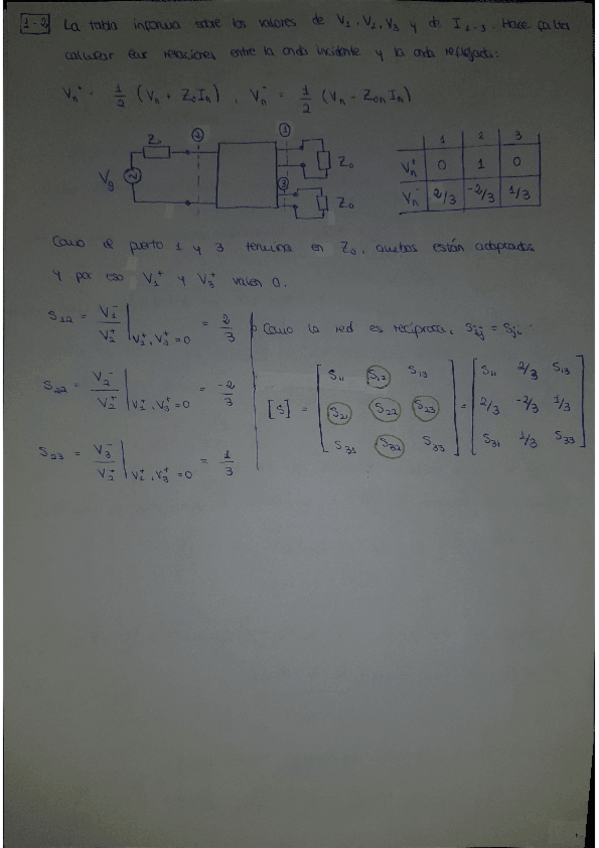 1-2 La tabla informa sobre los valores de V1, V2, V3 y de I1-3. Hace falta
calcular las relaciones entre la onda incidente y la onda reflejada:
Vn+ = 1/2 (Vn + Z0 In), Vn- = 1/2 (Vn - Z0n In)
Z0 ② ① Z0
Vg 2 ③ Z0
1 2 3
Vn+ 0 1 0
Vn- 2/3 -2/3 1/3
Como el puerto 1 y 3 termina en Z0, ambos están adaptados
y por eso V1+ y V3+ valen 0.
S12 = V1-/V2+ | V1+, V3+ = 0 = 2/3
Como la red es recíproca, Sij = Sji
S22 = V2-/V2+ | V1+, V3+ = 0 = -2/3
[S] = [ S11 S12 S13 ; S21 S22 S23 ; S31 S32 S33 ] = [ S11 2/3 S13 ; 2/3 -2/3 1/3 ; S31 1/3 S33 ]
S23 = V3-/V2+ | V1+, V3+ = 0 = 1/3